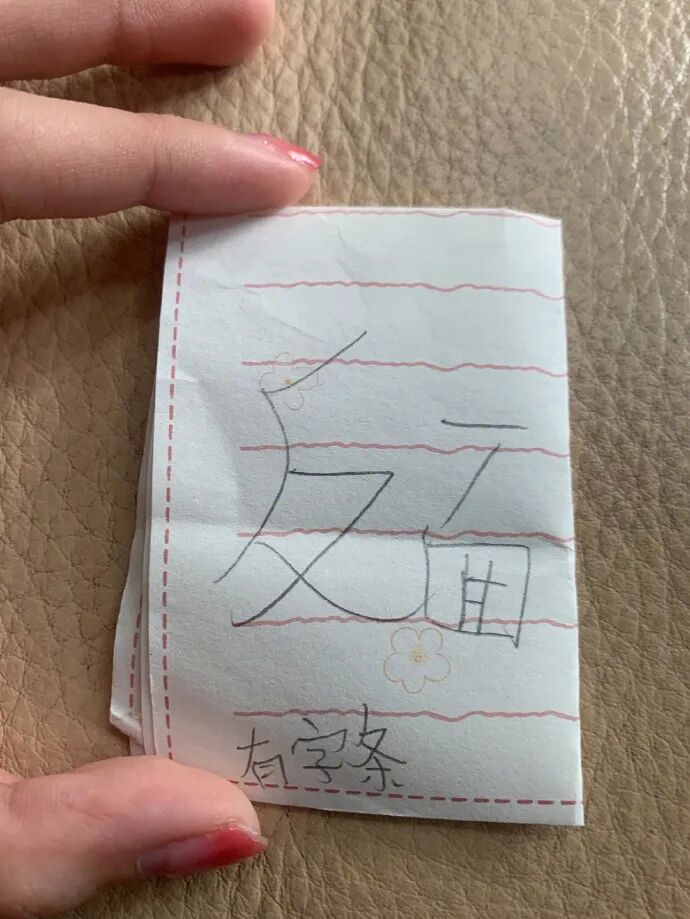 反面
有字条